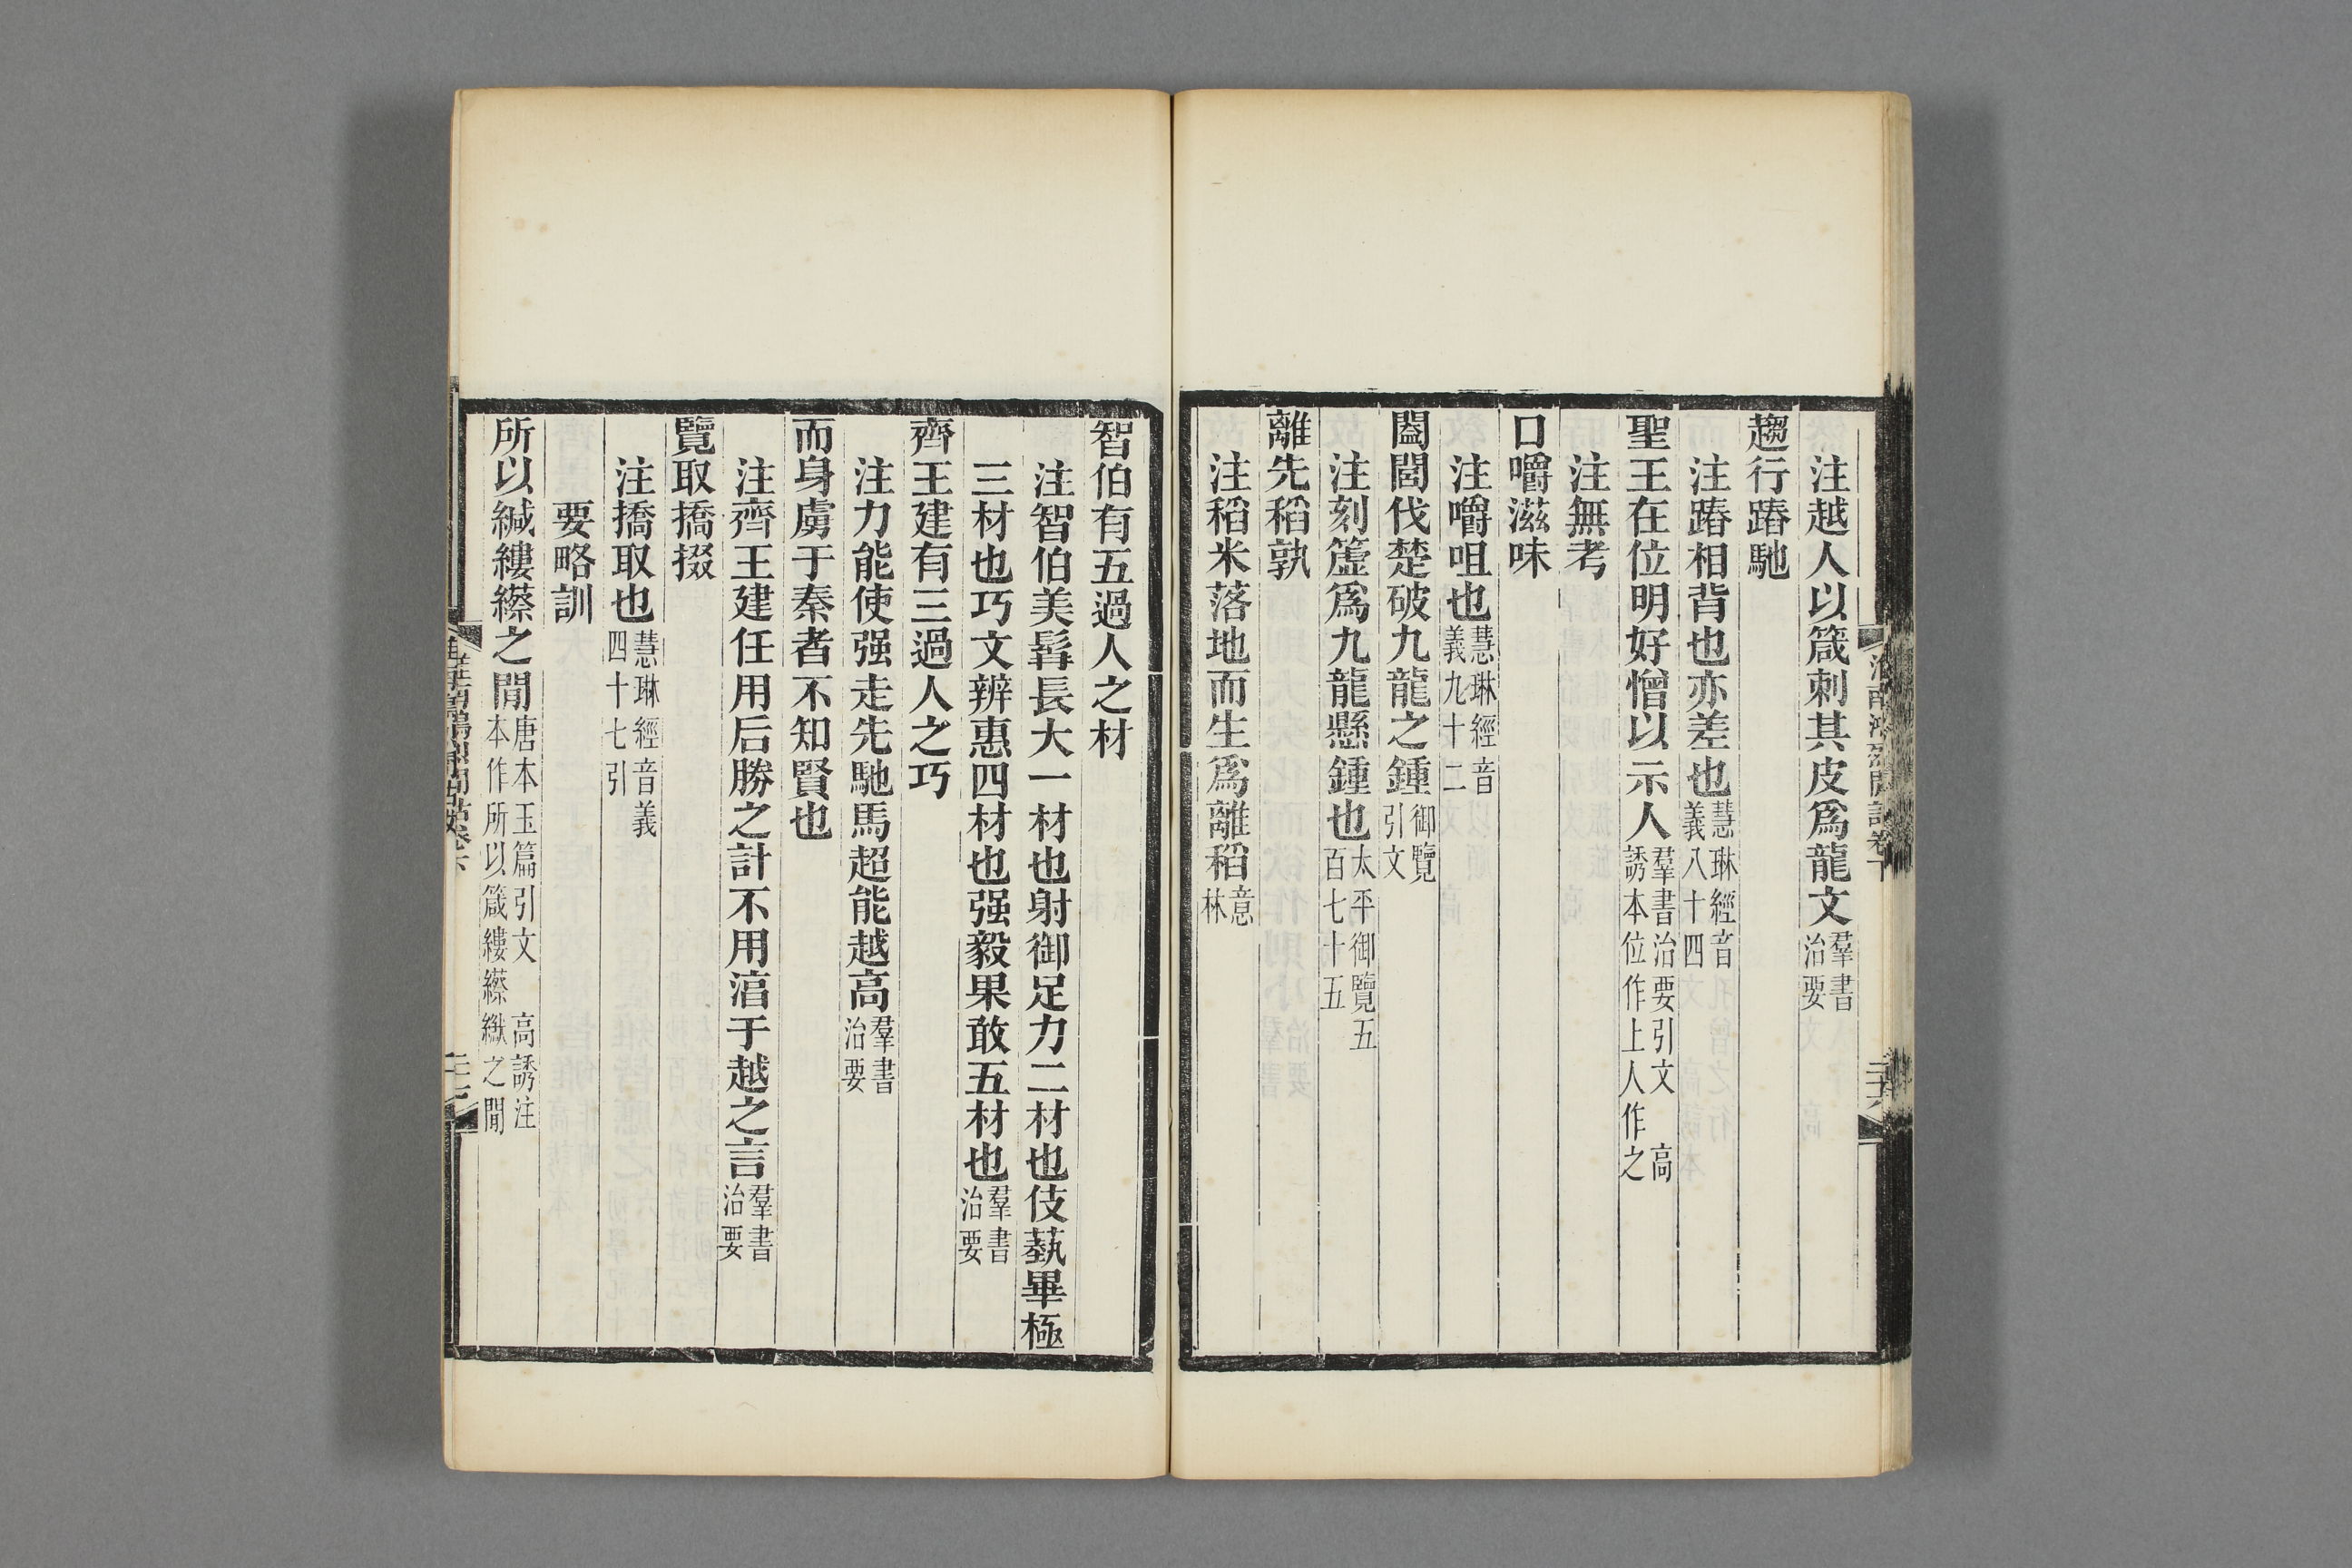 注越人以箴刺其皮爲龍文羣書治要
趨行蹖馳
注蹖相背也亦差也慧琳經音義八十四
聖王在位明好憎以示人羣書治要引文 高誘本位作上人作之
注無考
口嚼滋味
注嚼咀也慧琳經音義九十二
闔閭伐楚破九龍之鍾御覽引文
注刻簴爲九龍懸鍾也太平御覽五百七十五
離先稻孰
注稻米落地而生爲離稻意林
智伯有五過人之材
注智伯美髯長大一材也射御足力二材也伎蓺畢極
三材也巧文辨惠四材也强毅果敢五材也羣書治要
齊王建有三過人之巧
注力能使强走先馳馬超能越高羣書治要
而身虜于秦者不知賢也
注齊王建任用后勝之計不用湻于越之言羣書治要
覽取撟掇
注撟取也慧琳經音義四十七引
要略訓
所以縅縷縩之閒唐本玉篇引文 高誘注本作所以箴縷縩繺之閒
二十六
二十七